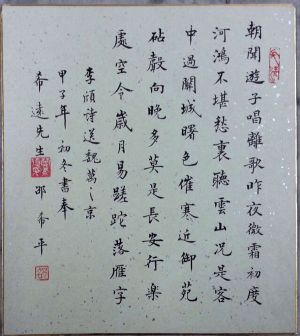 朝聞遊子唱離歌昨夜微霜初度
河鴻不堪愁裏聽雲山況是客
中過關城曙色催寒近御苑
砧聲向晚多莫是長安行樂
處空令歲月易蹉跎落雁字
李頎詩送魏萬之京
甲子年初冬書奉
希遠先生 邵希平